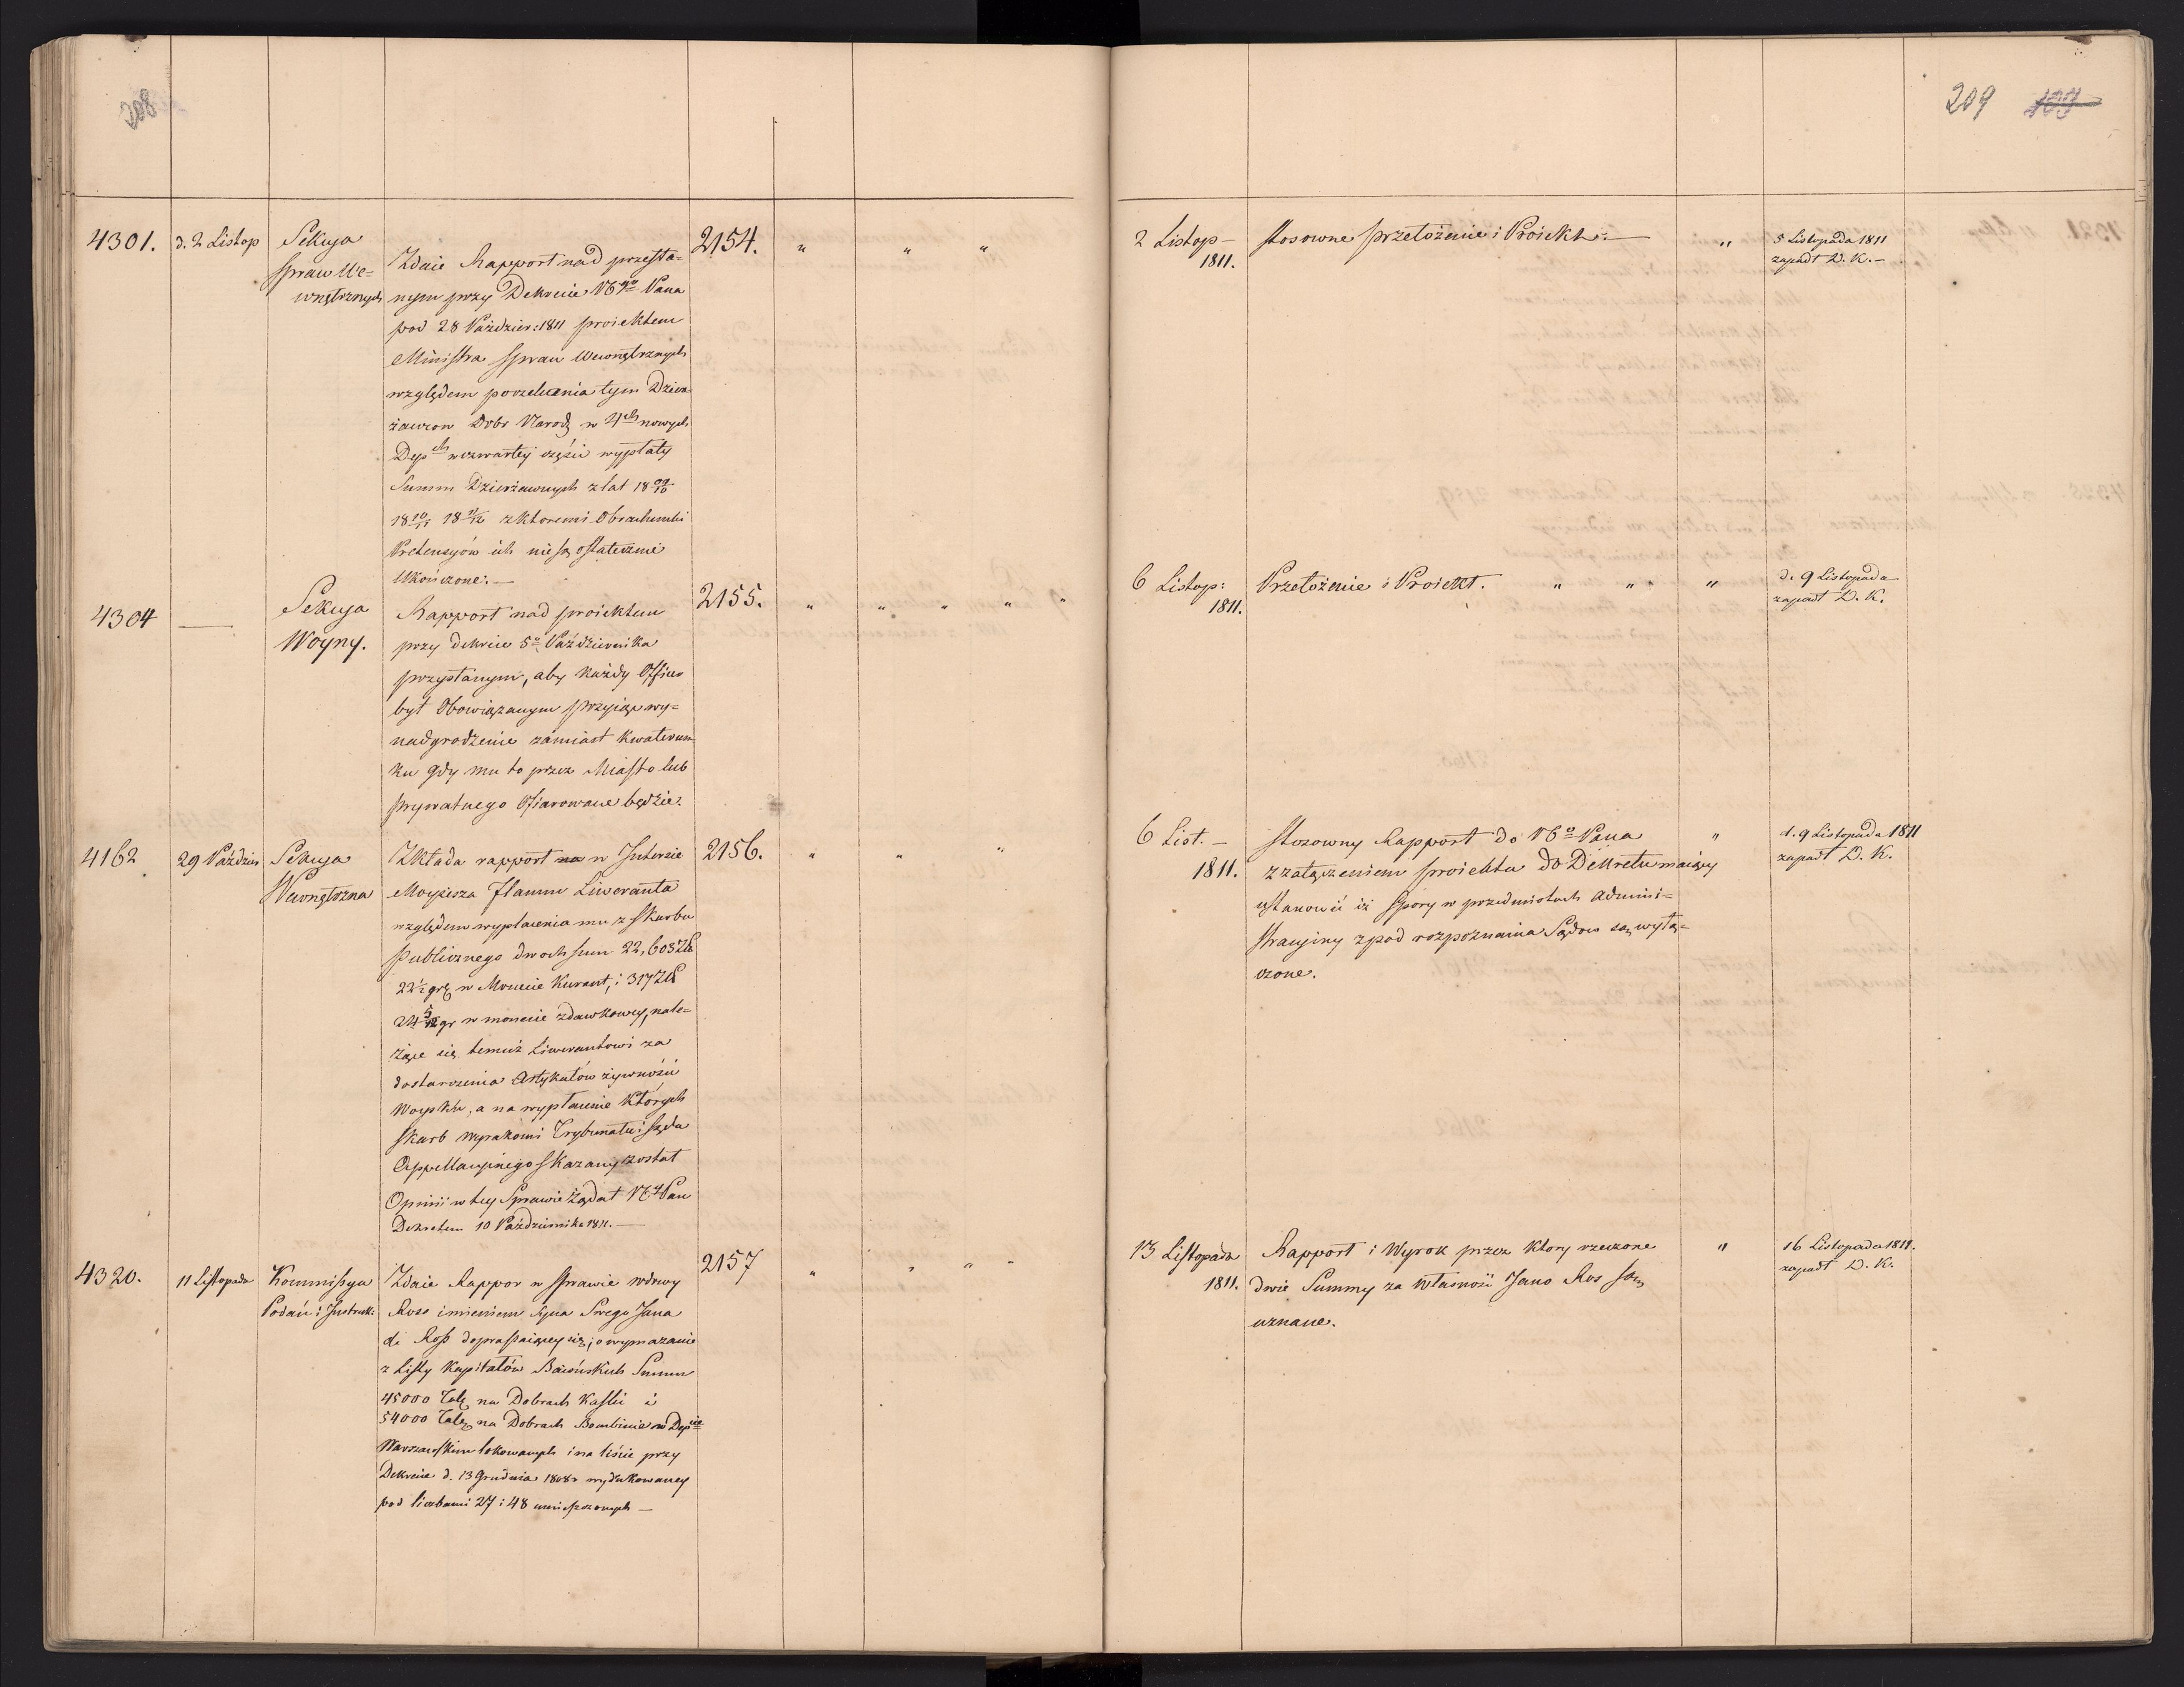 208
209
4301.
d. 2 Listop
Sekcya
spraw We=
wnętrznych
Zdaie Rapport nad przesła=
nym przy Dekrecie Pana
pod 28 Paździer: 1811 proiektem
Ministra Spraw Wewnętrznych
względem tym Dzier
żawcom Dobr Narodź w 4ch nowych
Depch w czwartey części wypłaty
Summ Dzierżawnych z lat 18 09/10
18 10/11 18 11/12 z ktoremi Obrachunki
Pretensyów ich nie są ostatecznie
Ukończone.—
2154. " " "
2 Listop—
1811.
stosowne przełożenie i Proiekt.—
"
5 Listopada 1811
zapadł D. K.—
4304
—
Sekcya
Woyny.
Rapport nad proiektem
przy dekrecie 5o Października
przysłanym, aby każdy Officer
był Obowiązanym przyiąc wy=
nadgrodzenie zamiast kwaterun=
ku gdy mu to przez Miasto lub
prywatnego Ofiarowane będzie.
2155. " " " " "
6 Listop:
1811.
Przełożenie i Proiekt. " " "
d. 9 Listopada
zapadł D. K.
4162
29 Paździer
Sekcya
Wewnętrzna
Zkłada rapport w Interesie
Moyżesza Flamm Liweranta
względem wypłacenia mu z skarbu
publicznego dwoch sum 22,603 Zł
22½ gr w Monecie Kurant, i 317 Zł
24 gr w monecie zdawkowey, nale=
żące się temuż Liwerantowi za
dostarczenia Artykułów żywności
Woysku, a na wypłacenie których
skarb wyrokami Trybunału i Sądu
Appellacyinego skazany został
Opinii w tey Sprawie żądał Pan
Dekretem 10 Października 1811.—
2156. " " "
6 List.—
1811.
Stosowny Rapport do Pana
z załączeniem proiektu do Dekretu maiący
ustanowić iż spory w przedmiotach admini=
stracyiny zpod rozpoznania Sądow są wyłą=
czone.
"
d. 9 Listopada 1811
zapadł D. K.
4320.
11 Listopada
Kommissya
Podań i Instrukc:
Zdaie Rappor w sprawie wdowy
Ross imieniem Syna Swego Jana
di Ross dopraszaiącey się, o wymazanie
z Listy Kapitałów Baiońskich Summ
45000 Tal na Dobrach Kaski i
54000 Tal na Dobrach w Depcie
Warszawskim lokowanych i na liście przy
Dekrecie d. 13 Grudnia 1808 r wydrukowaney
pod liczbami 27 i 48 umieszczonych—
2157 " " " "
13 Listopada
1811.
Rapport i Wyrok przez ktory rzeczone
dwie Summy za Własność Jano Ros są
uznane.
"
16 Listopada 1811.
zapadł D. K.